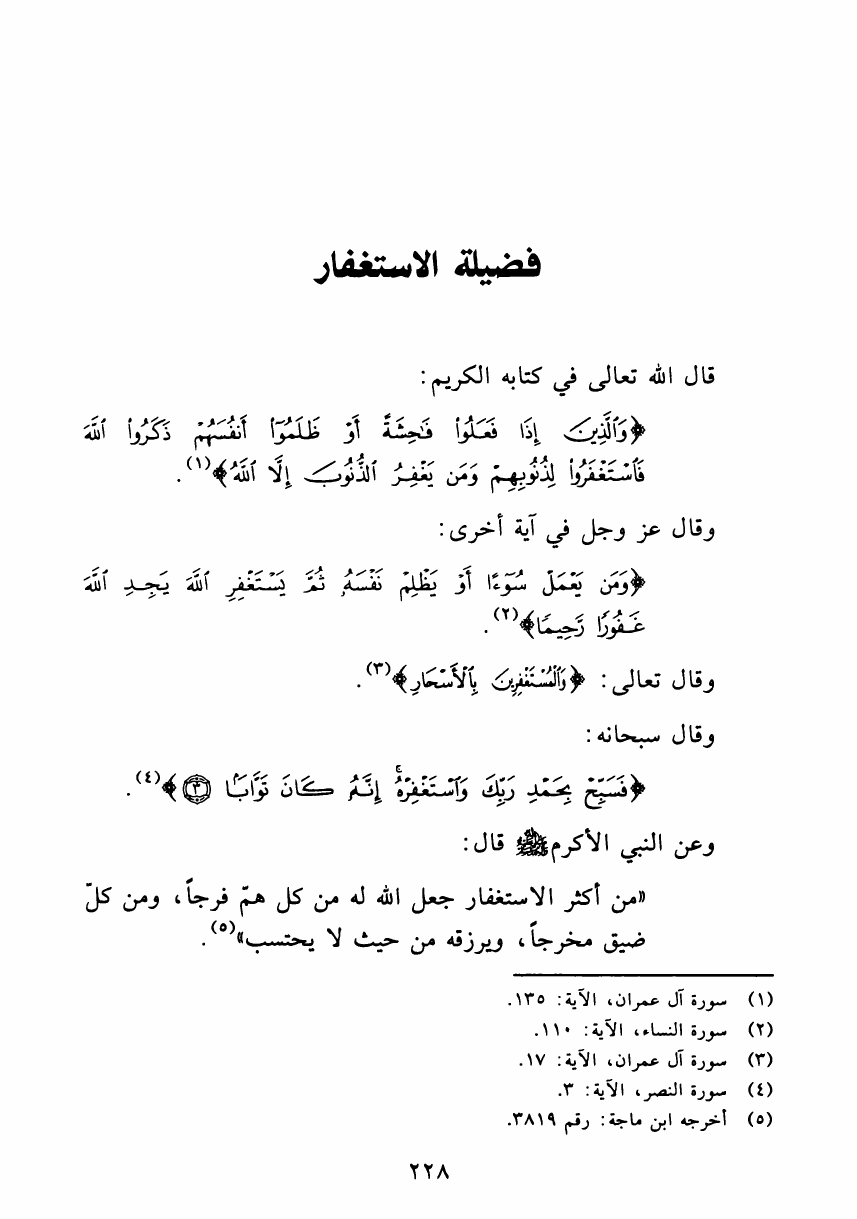 فضيلة الاستغفار
قال الله تعالى في كتابه الكريم:
﴿وَٱلَّذِينَ إِذَا فَعَلُوا۟ فَٰحِشَةً أَوْ ظَلَمُوٓا۟ أَنفُسَهُمْ ذَكَرُوا۟ ٱللَّهَ
فَٱسْتَغْفَرُوا۟ لِذُنُوبِهِمْ وَمَن يَغْفِرُ ٱلذُّنُوبَ إِلَّا ٱللَّهُ﴾(١).
وقال عز وجل في آية أخرى:
﴿وَمَن يَعْمَلْ سُوٓءًا أَوْ يَظْلِمْ نَفْسَهُۥ ثُمَّ يَسْتَغْفِرِ ٱللَّهَ يَجِدِ ٱللَّهَ
غَفُورًا رَّحِيمًا﴾(٢).
وقال تعالى: ﴿وَٱلْمُسْتَغْفِرِينَ بِٱلْأَسْحَارِ﴾(٣).
وقال سبحانه:
﴿فَسَبِّحْ بِحَمْدِ رَبِّكَ وَٱسْتَغْفِرْهُ ۚ إِنَّهُۥ كَانَ تَوَّابًۢا ٣﴾(٤).
وعن النبي الأكرم ﷺ قال:
«من أكثر الاستغفار جعل الله له من كل همّ فرجاً، ومن كلّ
ضيق مخرجاً، ويرزقه من حيث لا يحتسب»(٥).
(١) سورة آل عمران، الآية: ١٣٥.
(٢) سورة النساء، الآية: ١١٠.
(٣) سورة آل عمران، الآية: ١٧.
(٤) سورة النصر، الآية: ٣.
(٥) أخرجه ابن ماجة: رقم ٣٨١٩.
٢٢٨